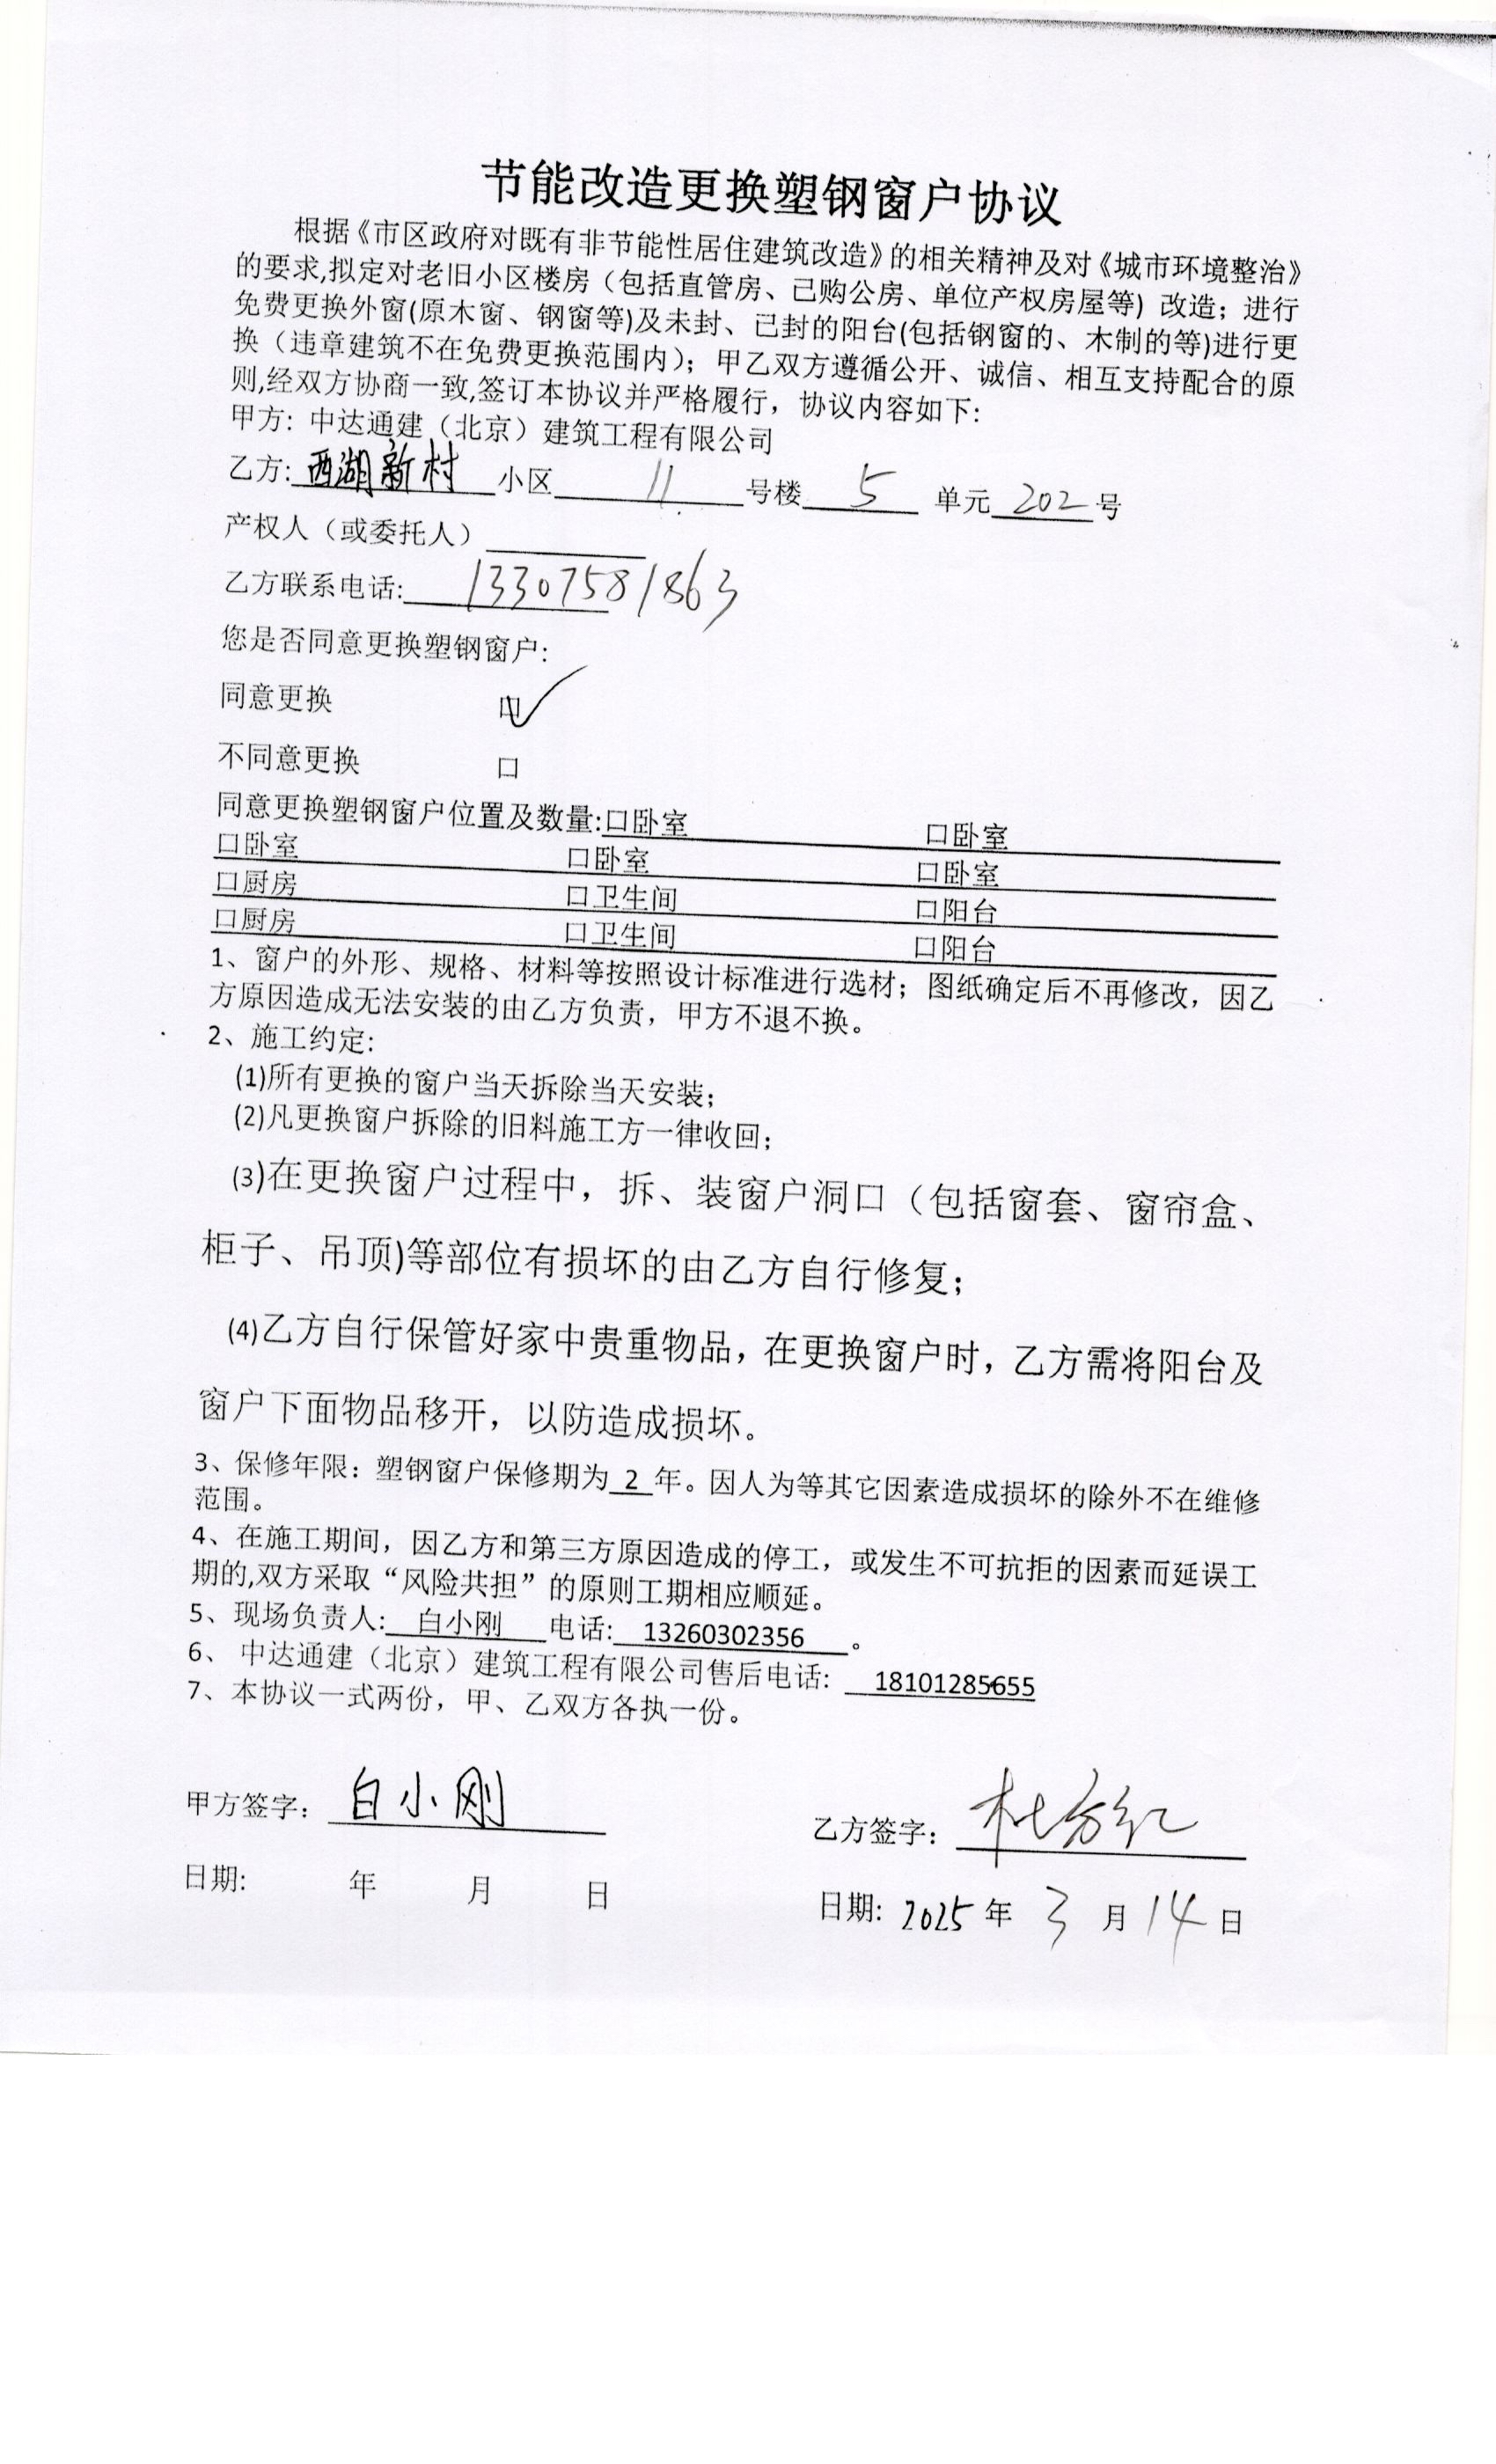 节能改造更换塑钢窗户协议
根据《市区政府对既有非节能性居住建筑改造》的相关精神及对《城市环境整治》
的要求,拟定对老旧小区楼房（包括直管房、已购公房、单位产权房屋等）改造；进行
免费更换外窗(原木窗、钢窗等)及未封、已封的阳台(包括钢窗的、木制的等)进行更
换（违章建筑不在免费更换范围内）；甲乙双方遵循公开、诚信、相互支持配合的原
则,经双方协商一致,签订本协议并严格履行，协议内容如下:
甲方: 中达通建（北京）建筑工程有限公司
乙方: 西湖新村 小区 11 号楼 5 单元 202 号
产权人（或委托人）
乙方联系电话: 13307581863
您是否同意更换塑钢窗户:
同意更换 口✓
不同意更换 口
同意更换塑钢窗户位置及数量:口卧室 口卧室
口卧室 口卧室 口卧室
口厨房 口卫生间 口阳台
口厨房 口卫生间 口阳台
1、窗户的外形、规格、材料等按照设计标准进行选材；图纸确定后不再修改，因乙
方原因造成无法安装的由乙方负责，甲方不退不换。
2、施工约定:
(1)所有更换的窗户当天拆除当天安装；
(2)凡更换窗户拆除的旧料施工方一律收回；
(3)在更换窗户过程中，拆、装窗户洞口（包括窗套、窗帘盒、
柜子、吊顶)等部位有损坏的由乙方自行修复；
(4)乙方自行保管好家中贵重物品，在更换窗户时，乙方需将阳台及
窗户下面物品移开，以防造成损坏。
3、保修年限：塑钢窗户保修期为 2 年。因人为等其它因素造成损坏的除外不在维修
范围。
4、在施工期间，因乙方和第三方原因造成的停工，或发生不可抗拒的因素而延误工
期的,双方采取“风险共担”的原则工期相应顺延。
5、现场负责人: 白小刚 电话: 13260302356 。
6、 中达通建（北京）建筑工程有限公司售后电话: 18101285655
7、本协议一式两份，甲、乙双方各执一份。
甲方签字： 白小刚
乙方签字： 杜红
日期: 年 月 日
日期: 2025 年 3 月 14 日